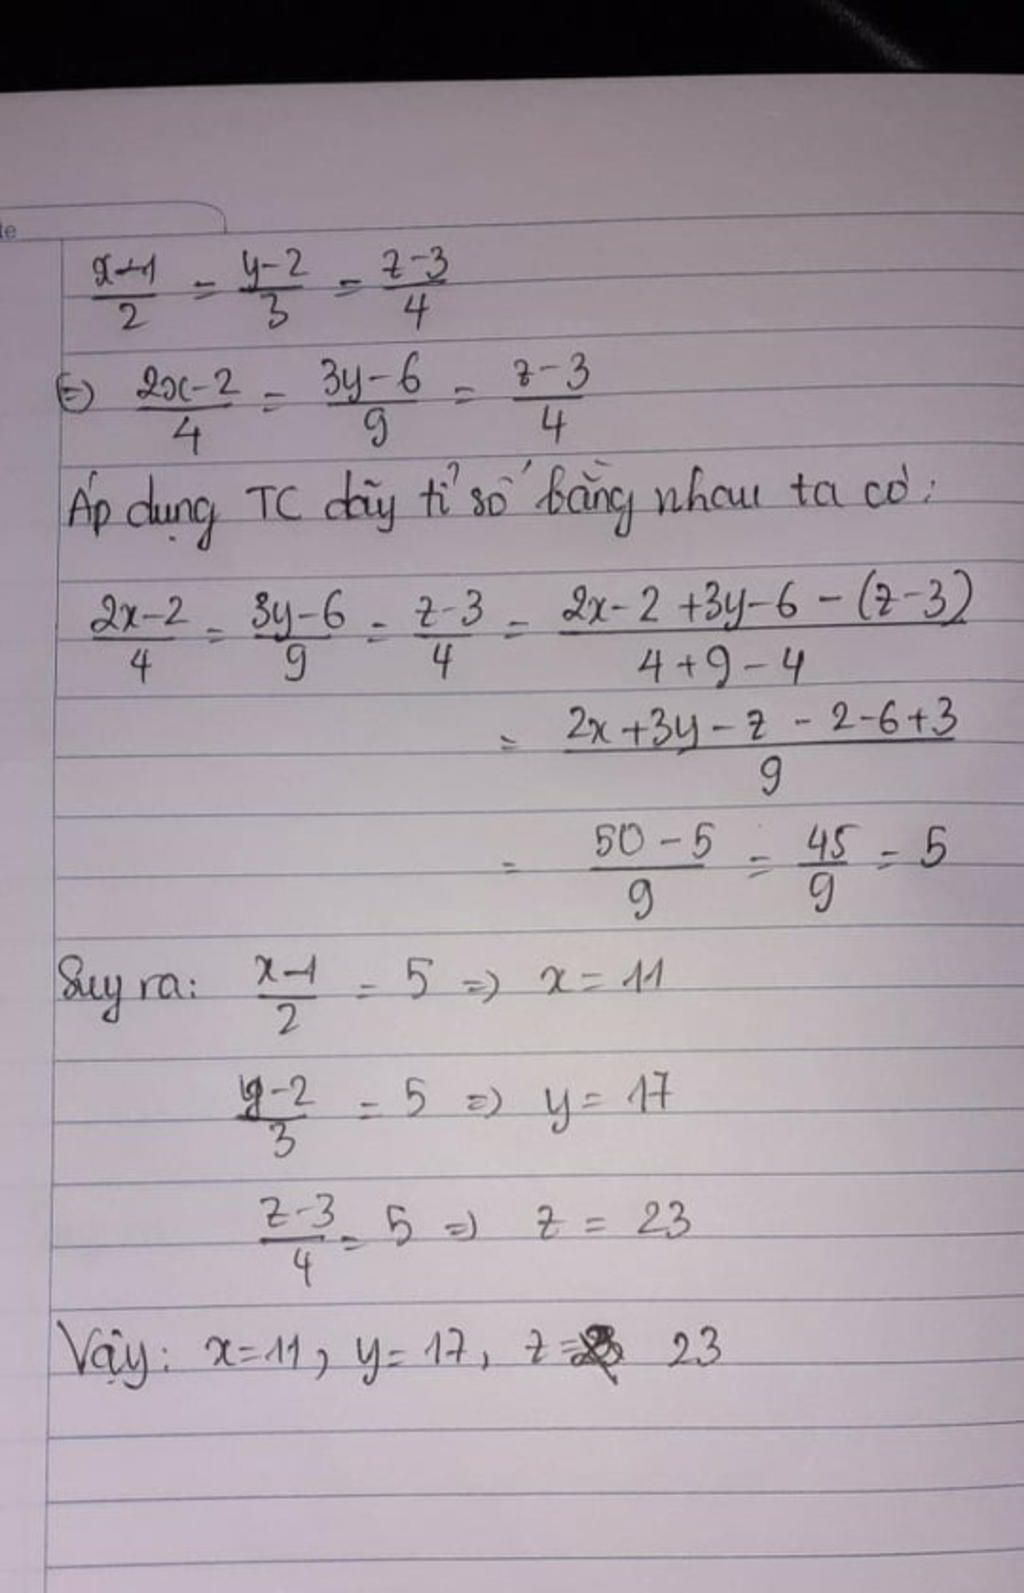 te
x-1/2 = y-2/3 = z-3/4
(=) 2x-2/4 = 3y-6/9 = z-3/4
Áp dụng TC dãy tỉ số bằng nhau ta có:
2x-2/4 = 3y-6/9 = z-3/4 = 2x-2+3y-6-(z-3)/4+9-4
= 2x+3y-z-2-6+3/9
= 50-5/9 = 45/9 = 5
Suy ra: x-1/2 = 5 => x = 11
y-2/3 = 5 => y = 17
z-3/4 = 5 => z = 23
Vậy: x=11, y=17, z= 23